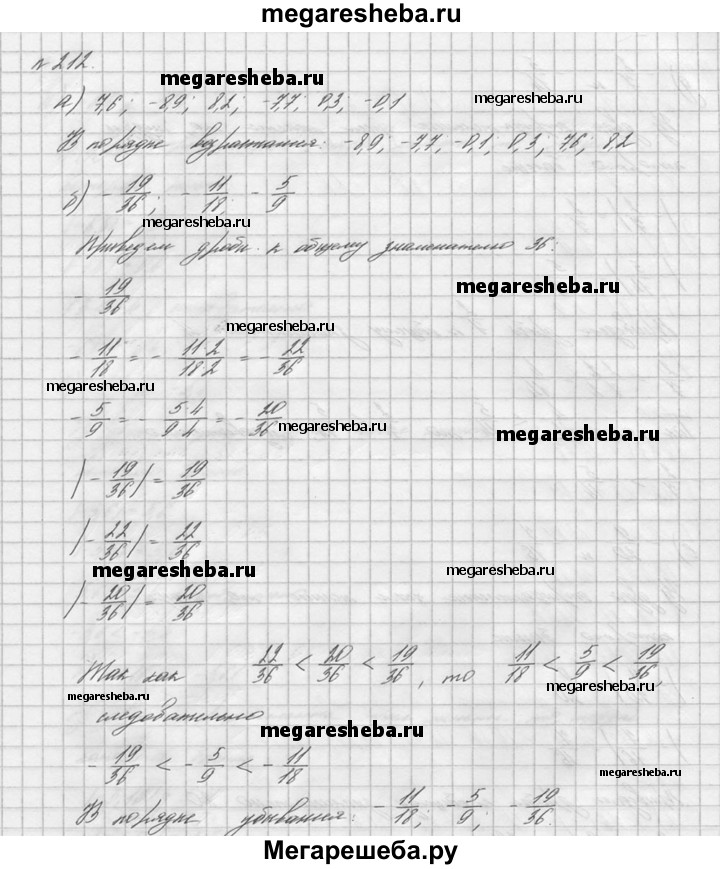 megaresheba.ru
№ 212.
megaresheba.ru
а) 7,6; -8,9; 8,2; -7,7; 0,3; -0,1 megaresheba.ru
В порядке возрастания: -8,9; -7,7; -0,1; 0,3; 7,6; 8,2
б) - 19/36; - 11/18; - 5/9
megaresheba.ru
Приведем дроби к общему знаменателю 36:
megaresheba.ru
- 19/36
megaresheba.ru
- 11/18 = - 11·2/18·2 = - 22/36
megaresheba.ru
- 5/9 = - 5·4/9·4 = - 20/36 megaresheba.ru
megaresheba.ru
|- 19/36| = 19/36
|- 22/36| = 22/36
megaresheba.ru megaresheba.ru
|- 20/36| = 20/36
Так как 22/36 < 20/36 < 19/36, то 11/18 < 5/9 < 19/36,
megaresheba.ru megaresheba.ru
следовательно
megaresheba.ru
- 19/36 < - 5/9 < - 11/18
megaresheba.ru
В порядке убывания: - 11/18; - 5/9; - 19/36.
Мегарешеба.ру